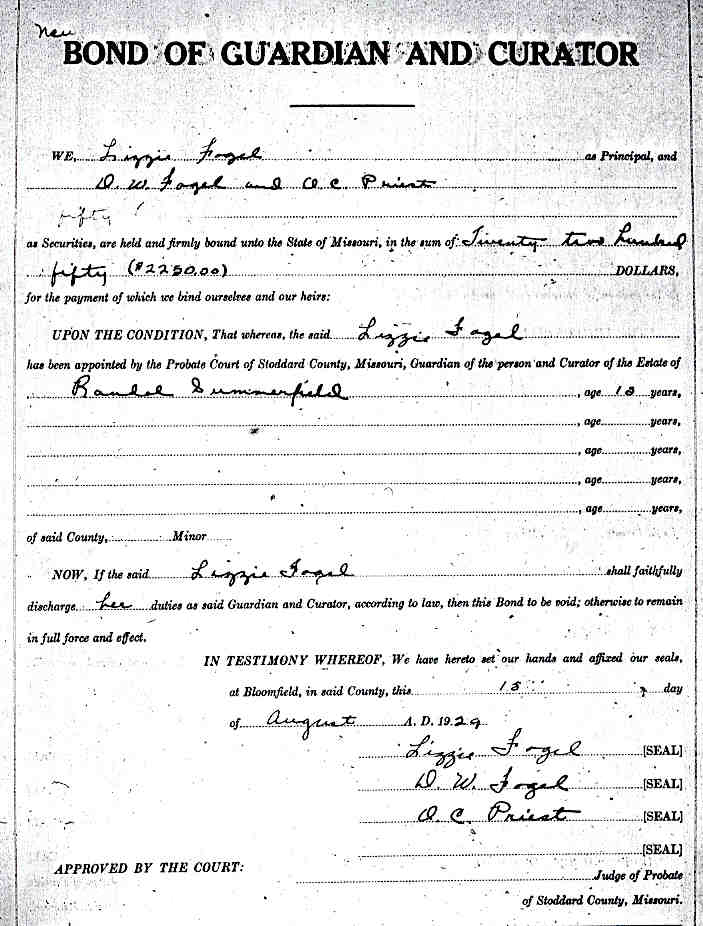 New
BOND OF GUARDIAN AND CURATOR
WE, Lizzie Fogel as Principal, and
D. W. Fogel and O. C. Priest
fifty
as Securities, are held and firmly bound unto the State of Missouri, in the sum of Twenty two hundred
fifty ($2250.00) DOLLARS,
for the payment of which we bind ourselves and our heirs:
UPON THE CONDITION, That whereas, the said Lizzie Fogel
has been appointed by the Probate Court of Stoddard County, Missouri, Guardian of the person and Curator of the Estate of
Summerfield, age years,
, age years,
, age years,
, age years,
, age years,
of said County, Minor
NOW, If the said Lizzie Fogel shall faithfully
discharge her duties as said Guardian and Curator, according to law, then this Bond to be void; otherwise to remain
in full force and effect.
IN TESTIMONY WHEREOF, We have hereto set our hands and affixed our seals,
at Bloomfield, in said County, this day
of August A. D. 1929
Lizzie Fogel [SEAL]
D. W. Fogel [SEAL]
O. C. Priest [SEAL]
[SEAL]
APPROVED BY THE COURT:
Judge of Probate
of Stoddard County, Missouri.